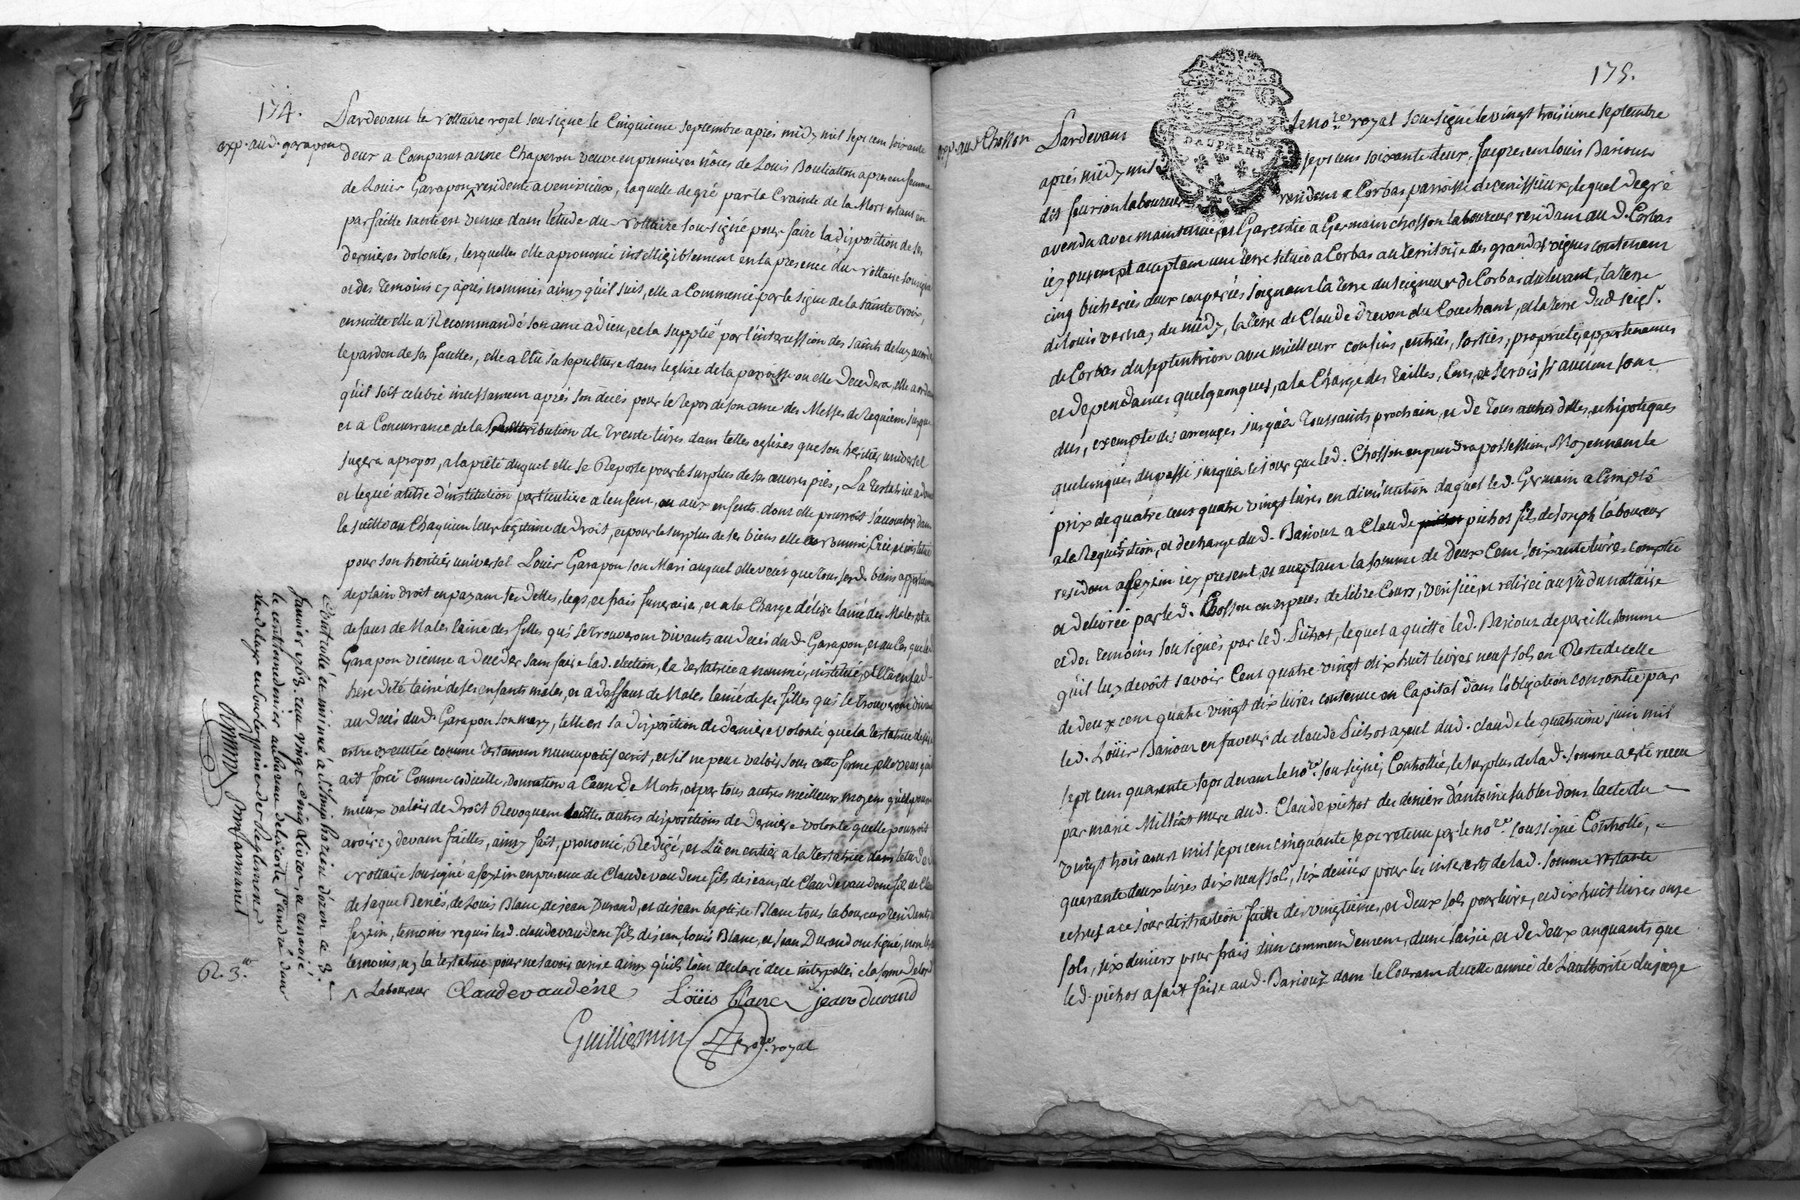 174.
exp. au d. garapon
Pardevant le Nottaire royal sousigné le Cinquieme septembre apres midy mil sept cent soixante
deux a Comparut anne Chaperon veuve en premieres nôces de Louis Boullatton apres en femme
de Louis Garapon ^ residente a venissieux, laquelle de gré par la Crainte de la Mort estant en
parfaitte santé est venue dans l'étude du Nottaire sousigné pour faire la disposition de ses
dernieres volontes, lesquelles elle a prononcé intelligiblement en la presence du Nottaire sousigné
et des temoins cy apres nommés ainsy qu'il suit, elle a Commencé par le signe de la sainte croix,
ensuitte elle a Recommandé son ame a dieu, et la supplié par l'intercession des saints de luy accorder
le pardon de ses fauttes, elle a élû sa sepulture dans leglise de la parroisse ou elle decedera, elle a ordonné
qu'il soit celebré incessament aprés son deces pour le repos de son ame des Messes de Requiem jusques
et a Concurrance de la Rettribution de trente livres dans telles eglises que son heritier universel
jugera apropos, a la pieté duquel elle se Reporte pour le surplus de ses œuvres pies, La testatrice a donné
et legué a titre d'institution particuliere a l'enfent, ou aux enfents dont elle pourroit s'accoucher dans
la suitte au Chaquun leur legitime de droit, et pour le surplus de ses biens elle a nommé, Créé et institué
pour son heritier universel Louis Garapon son Mari auquel elle veut que tous sesd. biens appartiennent
de plain droit en payant ses dettes, legs, et frais funeraires, et a la Charge d'élire lainé des Males, et a
defaut de Males lainé des filles qui se trouveront vivants au decés dud. Garapon, et au Cas que led.
Garapon vienne a deceder sans faire lad. election, la testatrice a nommé, institué, et
heredité lainé de ses enfants males, et a deffaut de Males lainé de ses filles qui se trouveront vivants
au decés dud. Garapon son mary, telle est sa disposition de derniere volonté que la testatrice desire
estre executée comme testament nuncupatif ecrit, et s'il ne peut valoir sous cette forme, elle veut qu'il
ait force Comme codicille, donnation a Cause de Mort, et par tous autres meilleurs moyens qu'il pourra
mieux valoir de droit Revoquant touttes autres dispositions de derniere volonté quelle pourroit
avoir cy devant faittes, ainsy fait, prononcé, Redigé, et Lû en entier a la testatrice dans letude du
Nottaire sousigné a feyzin en presence de Claude vaudene fils de jean, de Claude vaudene fils de Claude
de jaque Benés, de Louis Blanc, de jean Durand, et de jean baptiste Blanc tous laboureurs residents a
feyzin, temoins requis lesd. claude vaudene fils de jean, Louis Blanc, et jean Durand ont signé, non les autres
temoins, ny la testatrice pour ne savoir ecrire ainsy qu'ils l'ont declaré de ce interpellés
^ Laboureur Claude vaudéne Loüis blanc jean durand
Guilliermin no.re royal
Controlé et insinué a St Simphorien d'ozon ce 3.e
janvier 1763. reçu vingt cinq livres, et renvoié
le centieme denier au bureau de la côte St andré dans
les delays en sous les peines des Reglements
R. 3.tt
175.
exp. au d. Chosson
DAUPHINE
Pardevant le no.re royal sousigné le vingt troizieme septembre
apres midy mil sept cent soixante deux, fut present louis Barioz
dit fourson laboureur resident a Corbas parroisse de venissieux, lequel de gré
a vendu avec maintenue, et Garentie a Germain chosson laboureur resident aud. Corbas
icy present, et acceptant une terre située a Corbas au territoire des grands vignes contenant
cinq bicherées deux couperées joignant la terre du seigneur de Corbas du levant, la terre
de louis vernay du midy, la terre de Claude drevon du Couchant, et la terre dud. seigr.
de Corbas du septentrion avec meilleurs confins, entrées, sorties, proprietés, appartenances
et dependances quelquonques, a la Charge des tailles, Cens, et servis si aucuns sont
dus, exempte des arrerages jusqu'a toussaints prochain, et de tous autres dettes, et hipoteques
quelconques du passé jusqu'a ce jour que led. Chosson en prendra possession, Moyennant le
prix de quatre cent quatre vingt livres en diminution duquel led. Germain a Compté
a la Requisition, et decharge dud. Barioz a Claude pichot fils de joseph laboureur
resident a feyzin icy present, et acceptant la somme de deux Cent soixante livres comptée
et delivrée par led. Chosson en especes de libre Cours, verifiée, et retirée au vû du nottaire
et des temoins sousignés par led. Pichot, lequel a quitté led. Barioz de pareille somme
qu'il luy devoit savoir Cent quatre vingt dix huit livres neuf sols en Reste de celle
de deux cent quatre vingt dix livres contenue en Capital dans l'obligation consentie par
led. Loüis Barioz en faveur de claude Pichot ayeul dud. claude le quatrieme juin mil
sept cent quarante sept devant le no.re sousigné, Controllée, le surplus de la d. somme a eté receu
par marie Milliat mere dud. Claude pichot des deniers d'antoine sublet dans lacte du
vingt trois aoust mil sept cent cinquante sept retenu par le no.re soussigné Controllé,
quarante deux livres dix neuf sols, six deniers pour les interests de lad. somme restante
echus a ce jour distraction faitte des vingtiemes, et deux sols pour livre, et dix huit livres onze
sols, six deniers pour frais d'un commendement, d'une saisie, et de deux anquants que
led. pichot a fait faire aud. Barioz dans le Courant de cette année de Lauthorité du juge